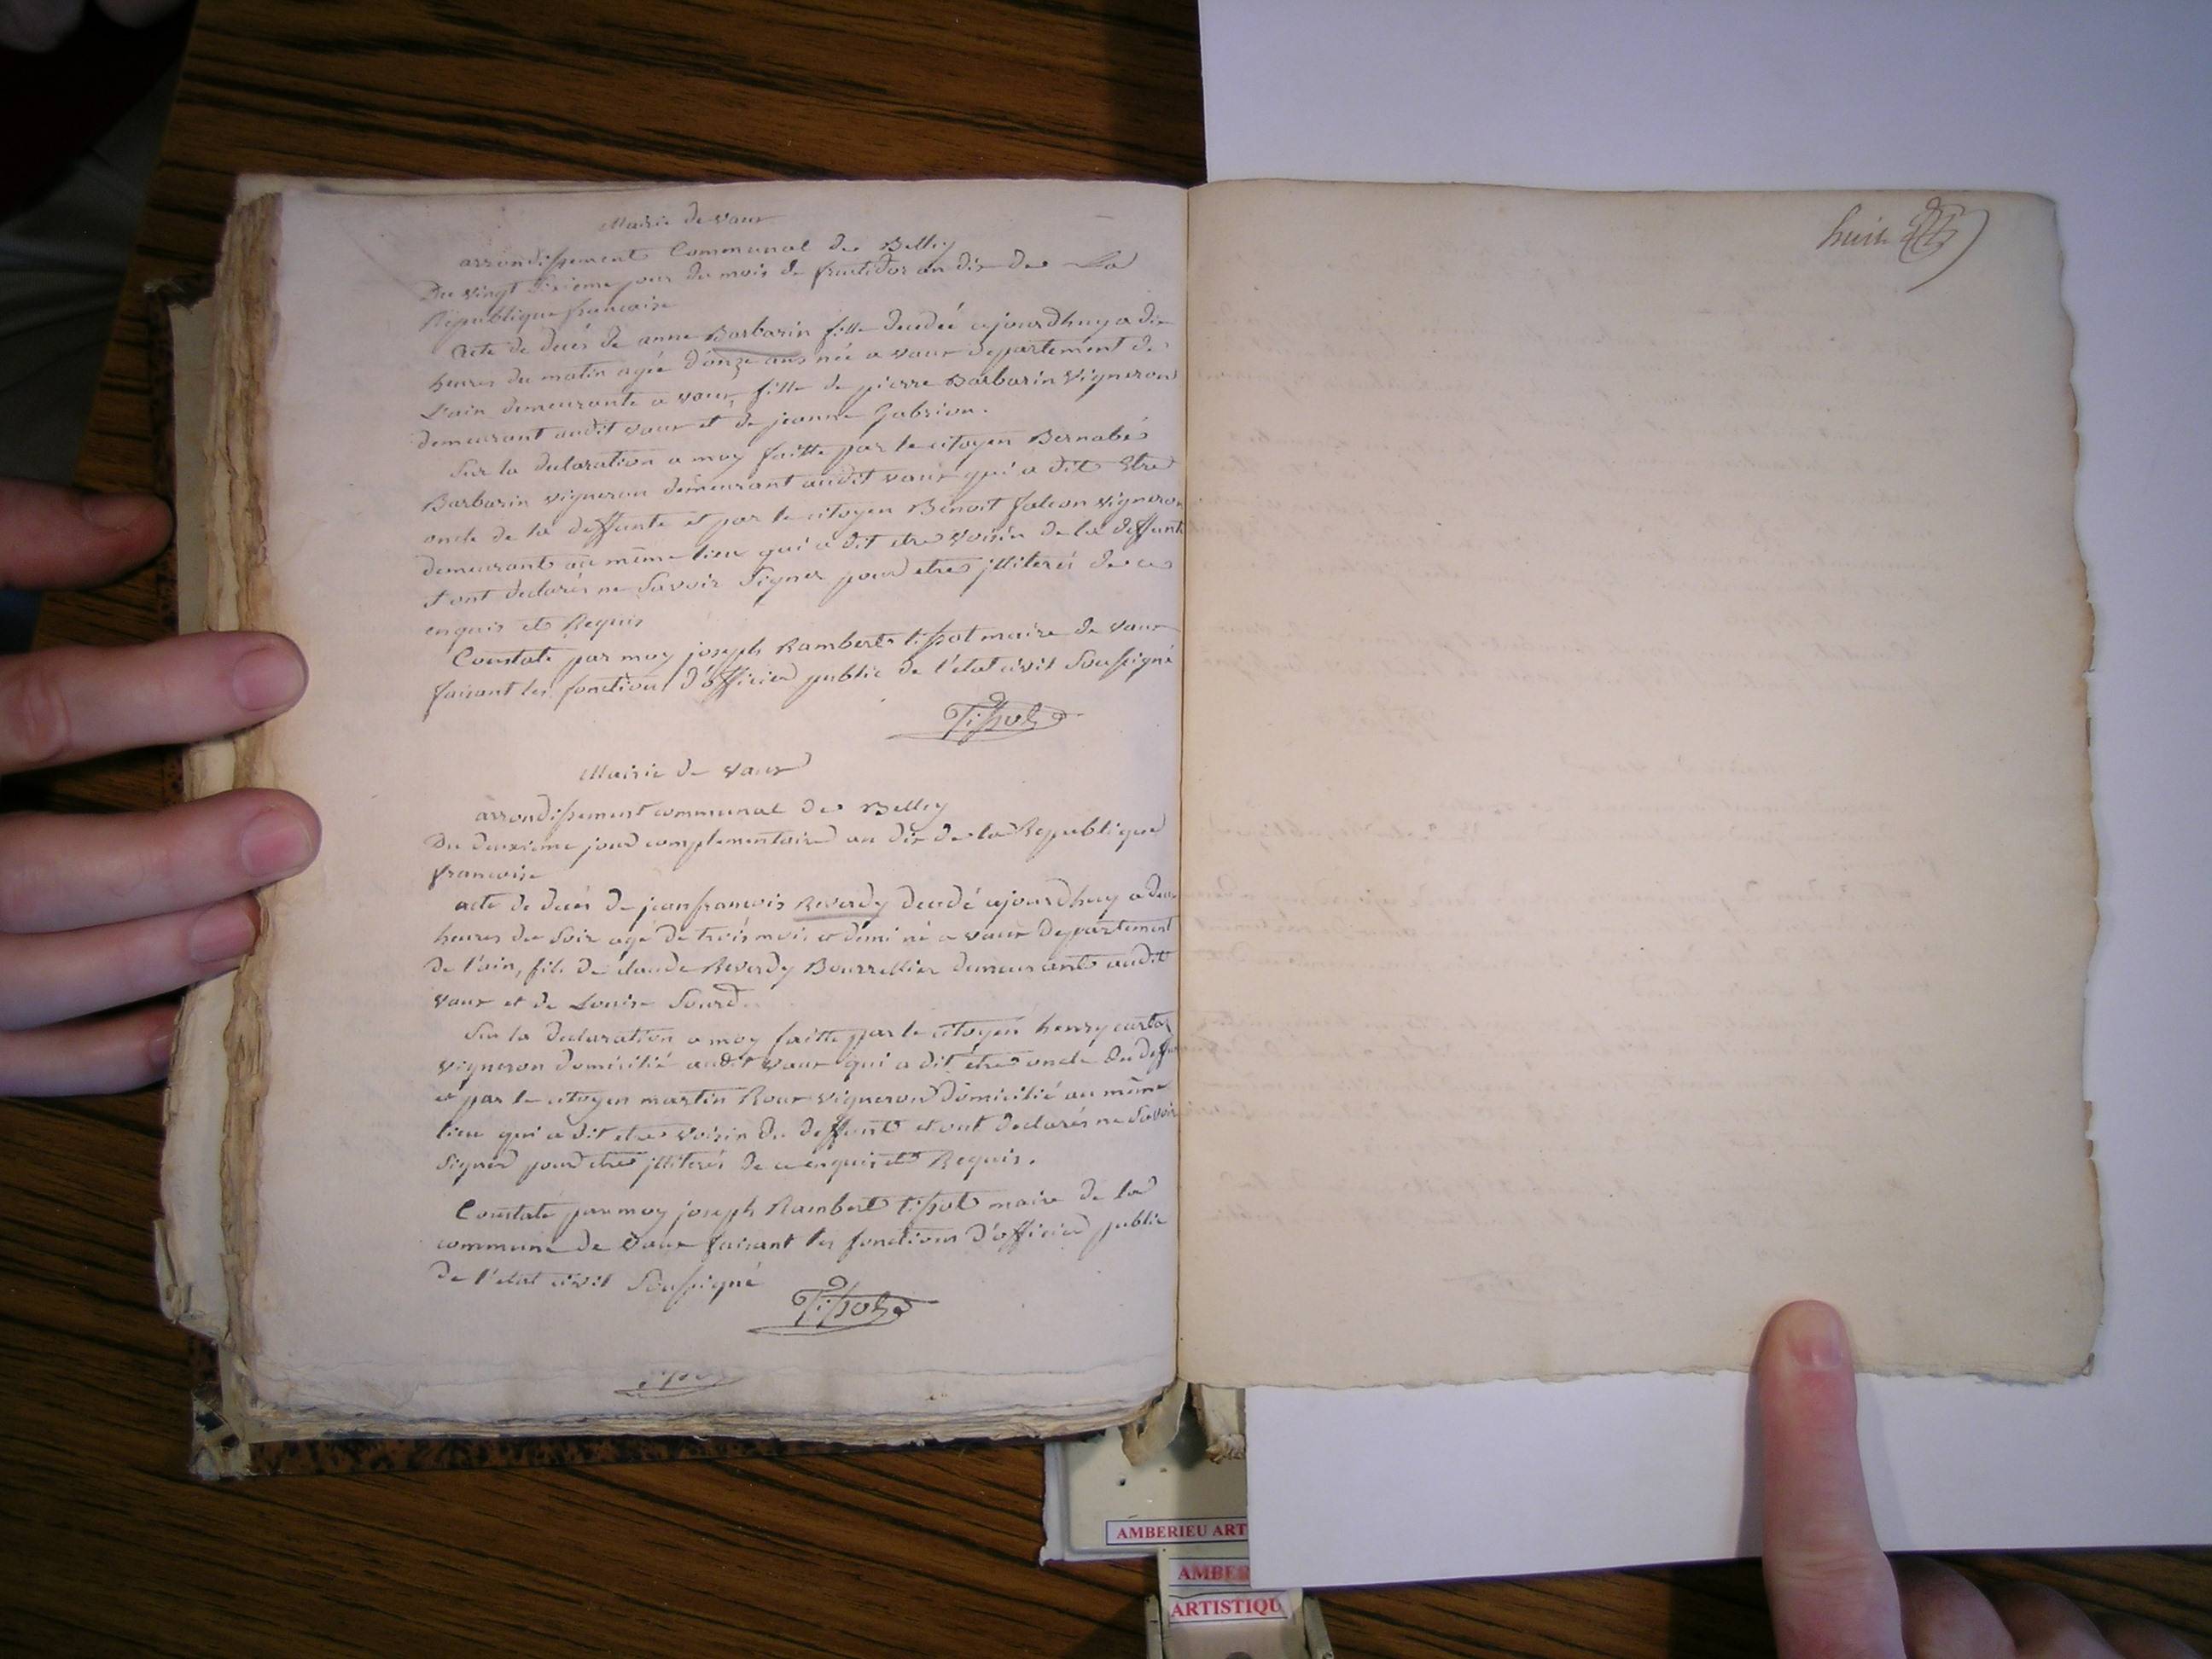 Mairie de vaux
arrondissement Communal de Belley
Du vingt sixieme jour du mois de fructidor an dix de La
Republique francoise
Acte de decés de anne Barbarin fille decedée ajourdhuy a dix
heures du matin agée d'onze ans née a vaux departement de
L'ain demeurante a vaux, fille de pierre Barbarin Vigneron
demeurant audit vaux et de jeanne Gabrion.
Sur la declaration a moy faitte par le citoyen Bernabés
Barbarin vigneron demeurant audit vaux qui a dit Etre
oncle de la deffunte et par le citoyen Benoit falcon vigneron
demeurant au même lieu qui a dit etre voisin de la deffunte
et ont declarés ne Savoir Signer pour etre jlliterés de ce
enquis et Requis
Constaté par moy joseph Rambert tissot maire de vaux
faisant les fonctions d'officier public de l'état civil Soussigné
Tissot
Mairie de vaux
arrondissement communal de Belley
Du deuxieme jour complementaire an dix de la Republique
francoise
acte de decés de jean francois Reverdy decedé ajourdhuy a deux
heures du Soir agé de trois mois et demi né a vaux departement
de l'ain, fils de claude Reverdy Bourrellier demeurant audit
vaux et de Louise Sourd
Sur la declaration a moy faitte par le citoyen henry
vigneron domicilié audit vaux qui a dit etre oncle du deffu
et par le citoyen martin Roux vigneron domicilié au même
lieu qui a dit etre voisin du deffunt et ont declarés ne Savoir
Signer pour etre jlliterés de ce enquis et Requis.
Constaté par moy joseph Rambert tissot maire de la
commune de vaux faisant les fonctions d'officier public
de l'etat civil Soussigné
Tissot
huit
AMBERIEU ART
AMBER
ARTISTIQU